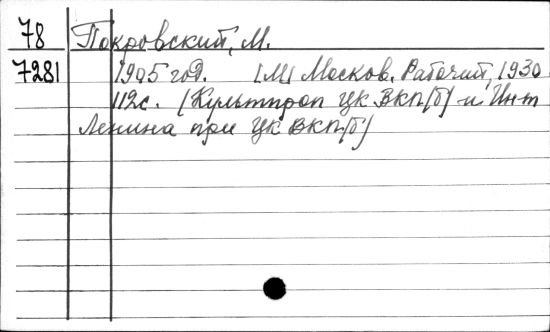 78 Покровский, М.
7281 1905 год. [М] Москов. Рабочий, 1930
112с. (Культпроп ЦК ВКП(б) и Инт
Ленина при ЦК ВКП(б)